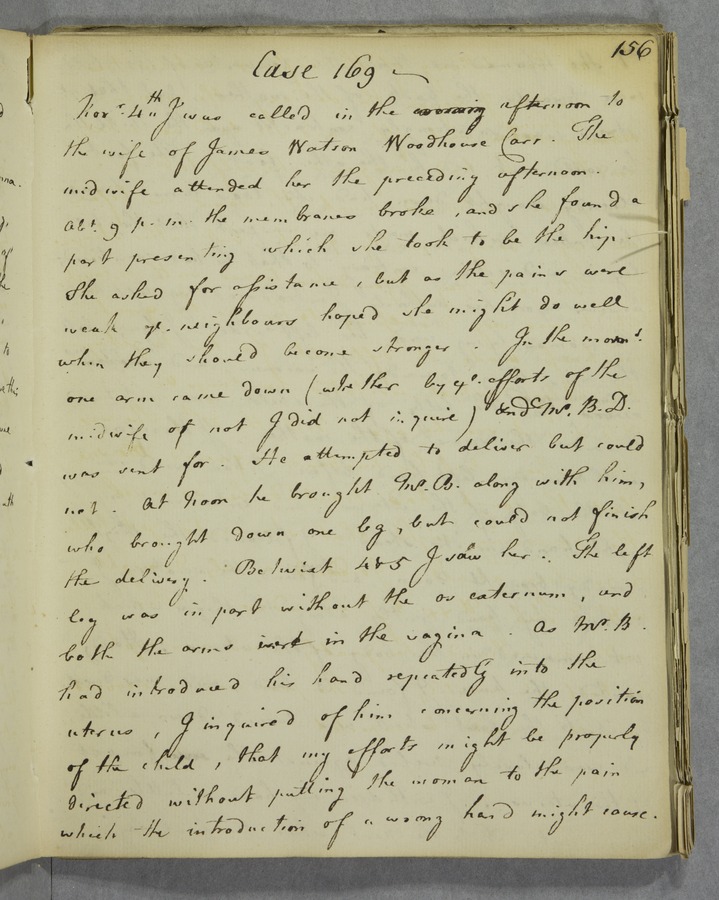 156
Case 169
Novr. 4th I was called in the morning afternoon to
the wife of James Watson Woodhouse Carr. The
midwife attended her the preceding afternoon.
Abt. 9 p. m. the membranes broke, and she found a
part presenting which she took to be the hip.
She asked for assistance, but as the pains were
weak ye. neighbours hoped she might do well
when they should become stronger. In the morng.
one arm came down (whether by ye. efforts of the
midwife or not I did not inquire) and Mr. B. D.
was sent for. He attempted to deliver but could
not. At Noon he brought Mr. B. along with him,
who brought down one leg, but could not finish
the delivery. Betwixt 4 & 5 I saw her. The left
leg was in part without the os externum, and
both the arms were in the vagina. As Mr. B.
had introduced his hand repeatedly into the
uterus, I inquired of him concerning the position
of the child, that my efforts might be properly
directed without putting the woman to the pain
which the introduction of a wrong hand might cause.